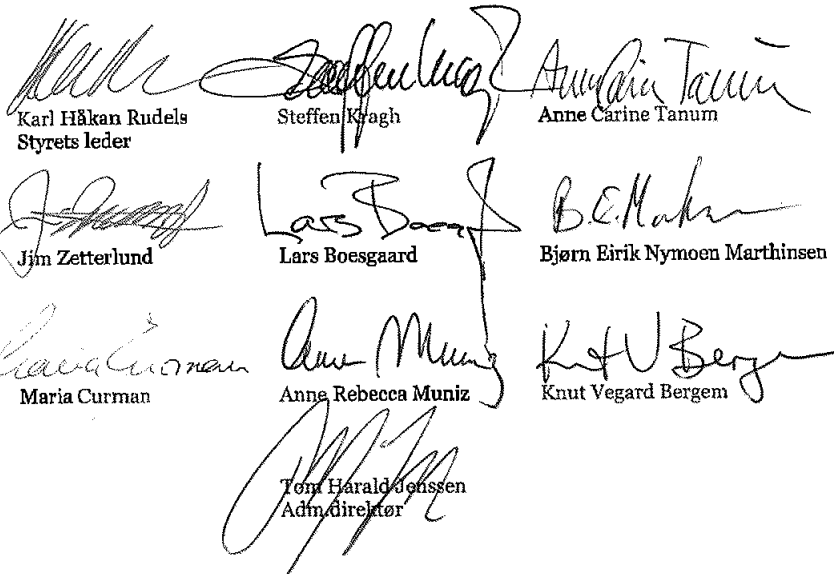 Karl Håkan Rudels
Styrets leder
Steffen Kragh
Anne Carine Tanum
Jim Zetterlund
Lars Boesgaard
Bjørn Eirik Nymoen Marthinsen
Maria Curman
Anne Rebecca Muniz
Knut Vegard Bergem
Tom Harald Jenssen
Adm.direktør